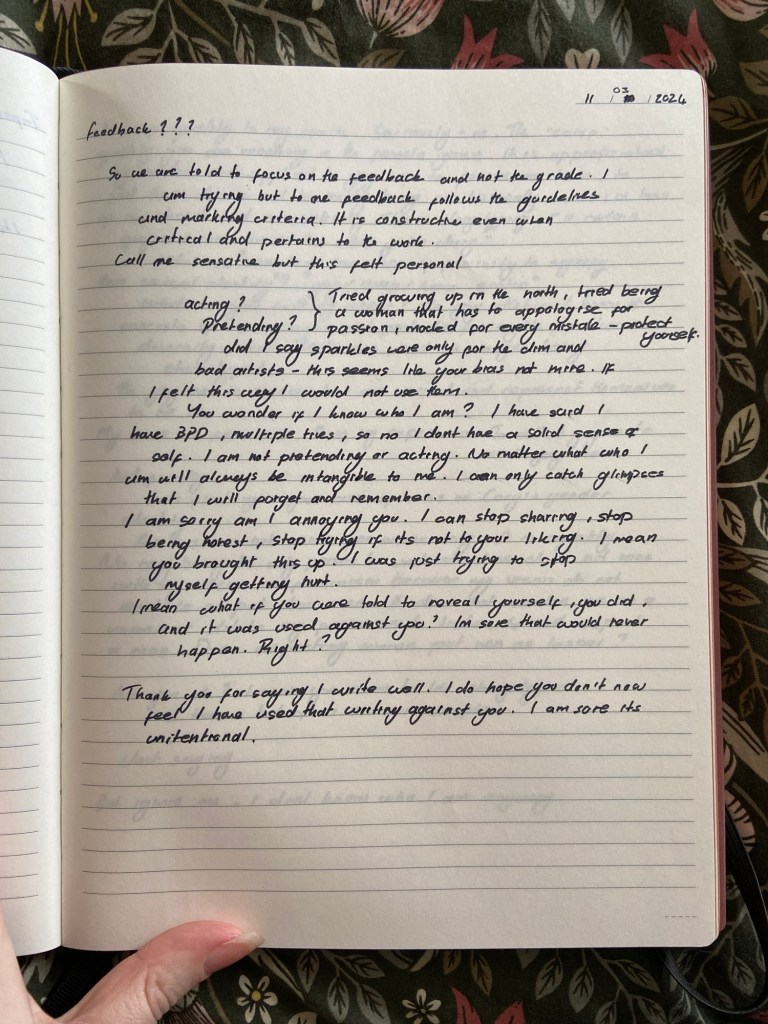 11 / 03 / 2024
feedback ???
So we are told to focus on the feedback and not the grade. I
am trying but to me feedback follows the guidelines
and marking criteria. It is constructive even when
critical and pertains to the work.
Call me sensative but this felt personal
acting? } Tried growing up in the north, tried being
a woman that has to appologise for
Pretending? passion, mocked for every mistake – protect
yourself.
did I say sparkles were only for the dim and
bad artists – this seems like your bias not mine. If
I felt this way I would not use them.
You wonder if I know who I am? I have said I
have BPD, multiple times, so no I dont have a solid sense of
self. I am not pretending or acting. No matter what who I
am will always be intangible to me. I can only catch glimpses
that I will forget and remember.
I am sorry am I annoying you. I can stop sharing, stop
being honest, stop trying if its not to your liking. I mean
you brought this up. I was just trying to stop
myself getting hurt.
I mean what if you were told to reveal yourself, you did,
and it was used against you? Im sure that would never
happen. Right?
Thank you for saying I write well. I do hope you don't now
feel I have used that writing against you. I am sure its
unitentional.